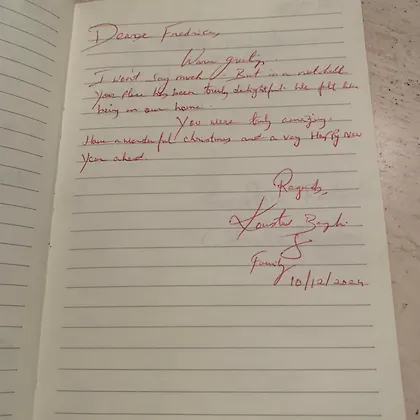 Deare Fredrica,
Warm greetings,
I won't say much. But in a nutshell
your place has been truly delightful. We felt like
being in our home.
You were truly amazing.
Have a wonderful christmas and a very Happy New
Year ahead.
Regards,
&
Family
10/12/2024